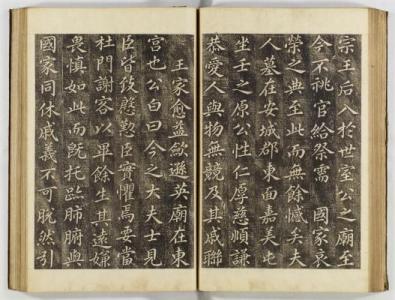 宗王后入於世室公之廟至
今不祧官給祭需　國家哀
榮之典至此而無餘憾矣夫
人墓在安城郡東面嘉美屯
坐壬之原公性仁厚慈順謙
恭愛人與物無競及其戚聯
王家愈益歛遜英廟在東
宮也公白曰今之大夫士見
臣皆致慇懃臣實懼焉要當
杜門謝客以畢餘生其遠嫌
畏慎如此而旣托跡肺腑與
國家同休戚義不可脫然引